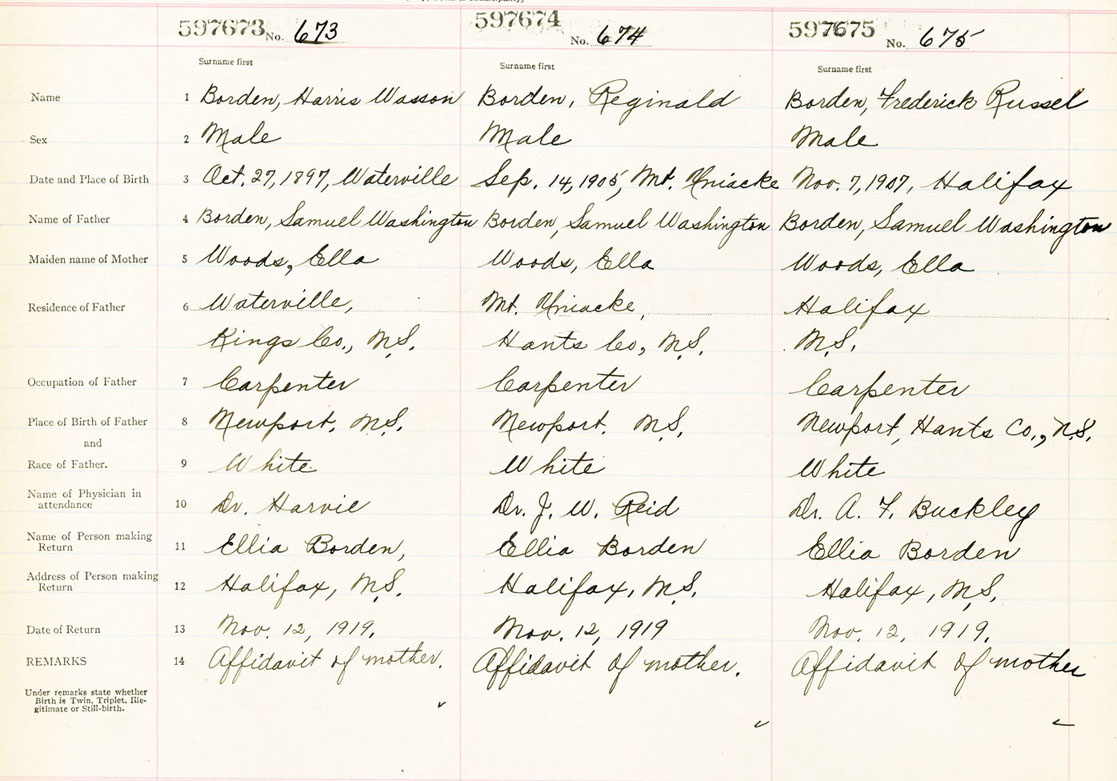 597673 No. 673 597674 No. 674 597675 No. 675
Surname first Surname first Surname first
Name 1 Borden, Harris Wasson Borden, Reginald Borden, Frederick Russel
Sex 2 Male Male Male
Date and Place of Birth 3 Oct. 27, 1897, Waterville Sep. 14, 1905, Mt. Uniacke Nov. 7, 1907, Halifax
Name of Father 4 Borden, Samuel Washington Borden, Samuel Washington Borden, Samuel Washington
Maiden name of Mother 5 Woods, Ella Woods, Ella Woods, Ella
Residence of Father 6 Waterville, Mt. Uniacke, Halifax
Kings Co., N.S. Hants Co, N.S. N.S.
Occupation of Father 7 Carpenter Carpenter Carpenter
Place of Birth of Father 8 Newport, N.S. Newport. N.S. Newport, Hants Co., N.S.
and
Race of Father. 9 White White White
Name of Physician in
attendance 10 Dr. Harvie Dr. J. W. Reid Dr. A. F. Buckley
Name of Person making
Return 11 Ellia Borden, Ellia Borden Ellia Borden
Address of Person making
Return 12 Halifax, N.S. Halifax, N.S. Halifax, N.S.
Date of Return 13 Nov. 12, 1919. Nov. 12, 1919 Nov. 12, 1919.
REMARKS 14 Affidavit of mother. Affidavit of mother. Affidavit of mother
Under remarks state whether
Birth is Twin, Triplet, Ille-
gitimate or Still-birth.